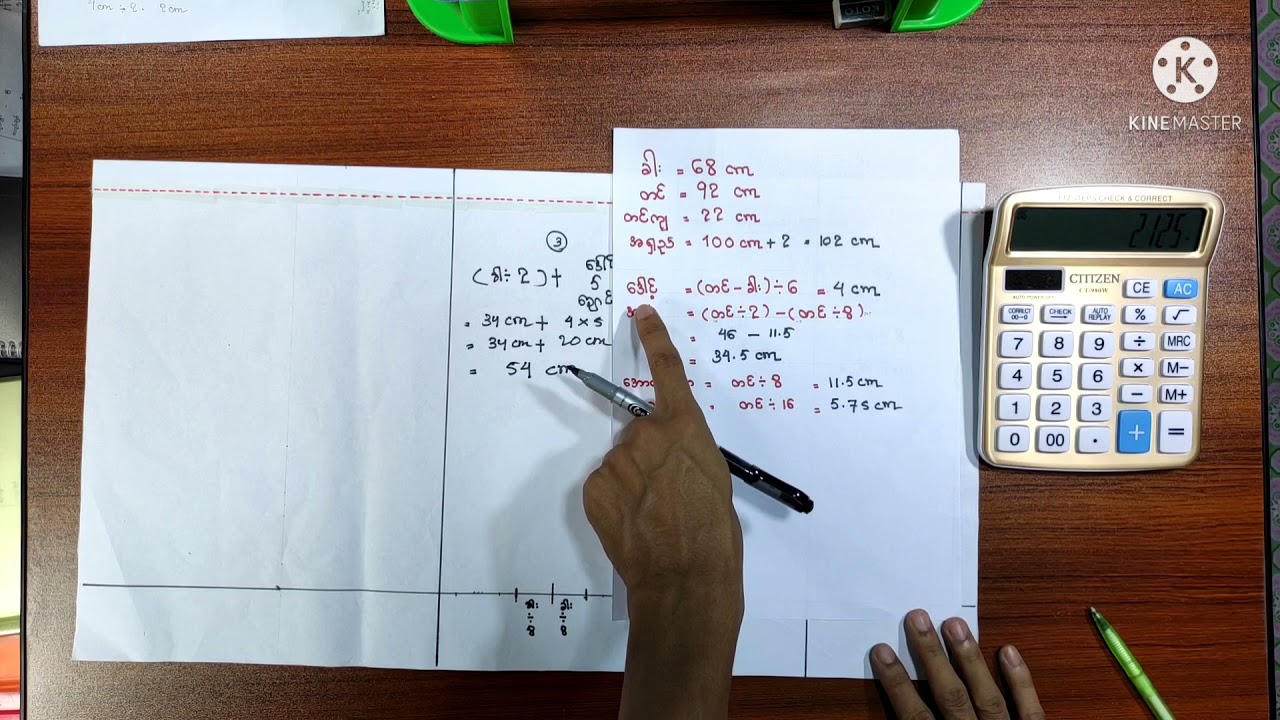 4cm ÷ 2. 2cm
KOTO
KINEMASTER
③
(ခါး ÷ 2) +
5
= 34 cm + 4 × 5
= 34 cm + 20 cm
= 54 cm
ခါး ÷ 8
ခါး ÷ 8
ခါး = 68 cm
တင် = 92 cm
တင်ကျ = 22 cm
အရှည် = 100 cm + 2 = 102 cm
ဒေါင့် = (တင် - ခါး) ÷ 6 = 4 cm
= (တင် ÷ 2) - (တင် ÷ 8)
= 46 - 11.5
= 34.5 cm
= တင် ÷ 8 = 11.5 cm
= တင် ÷ 16 = 5.75 cm
CHECK & CORRECT
2125.
CITIZEN
AUTO POWER OFF
CE AC
CORRECT CHECK AUTO REPLAY % √
7 8 9 ÷ MRC
4 5 6 × M−
1 2 3 − M+
0 00 . + =